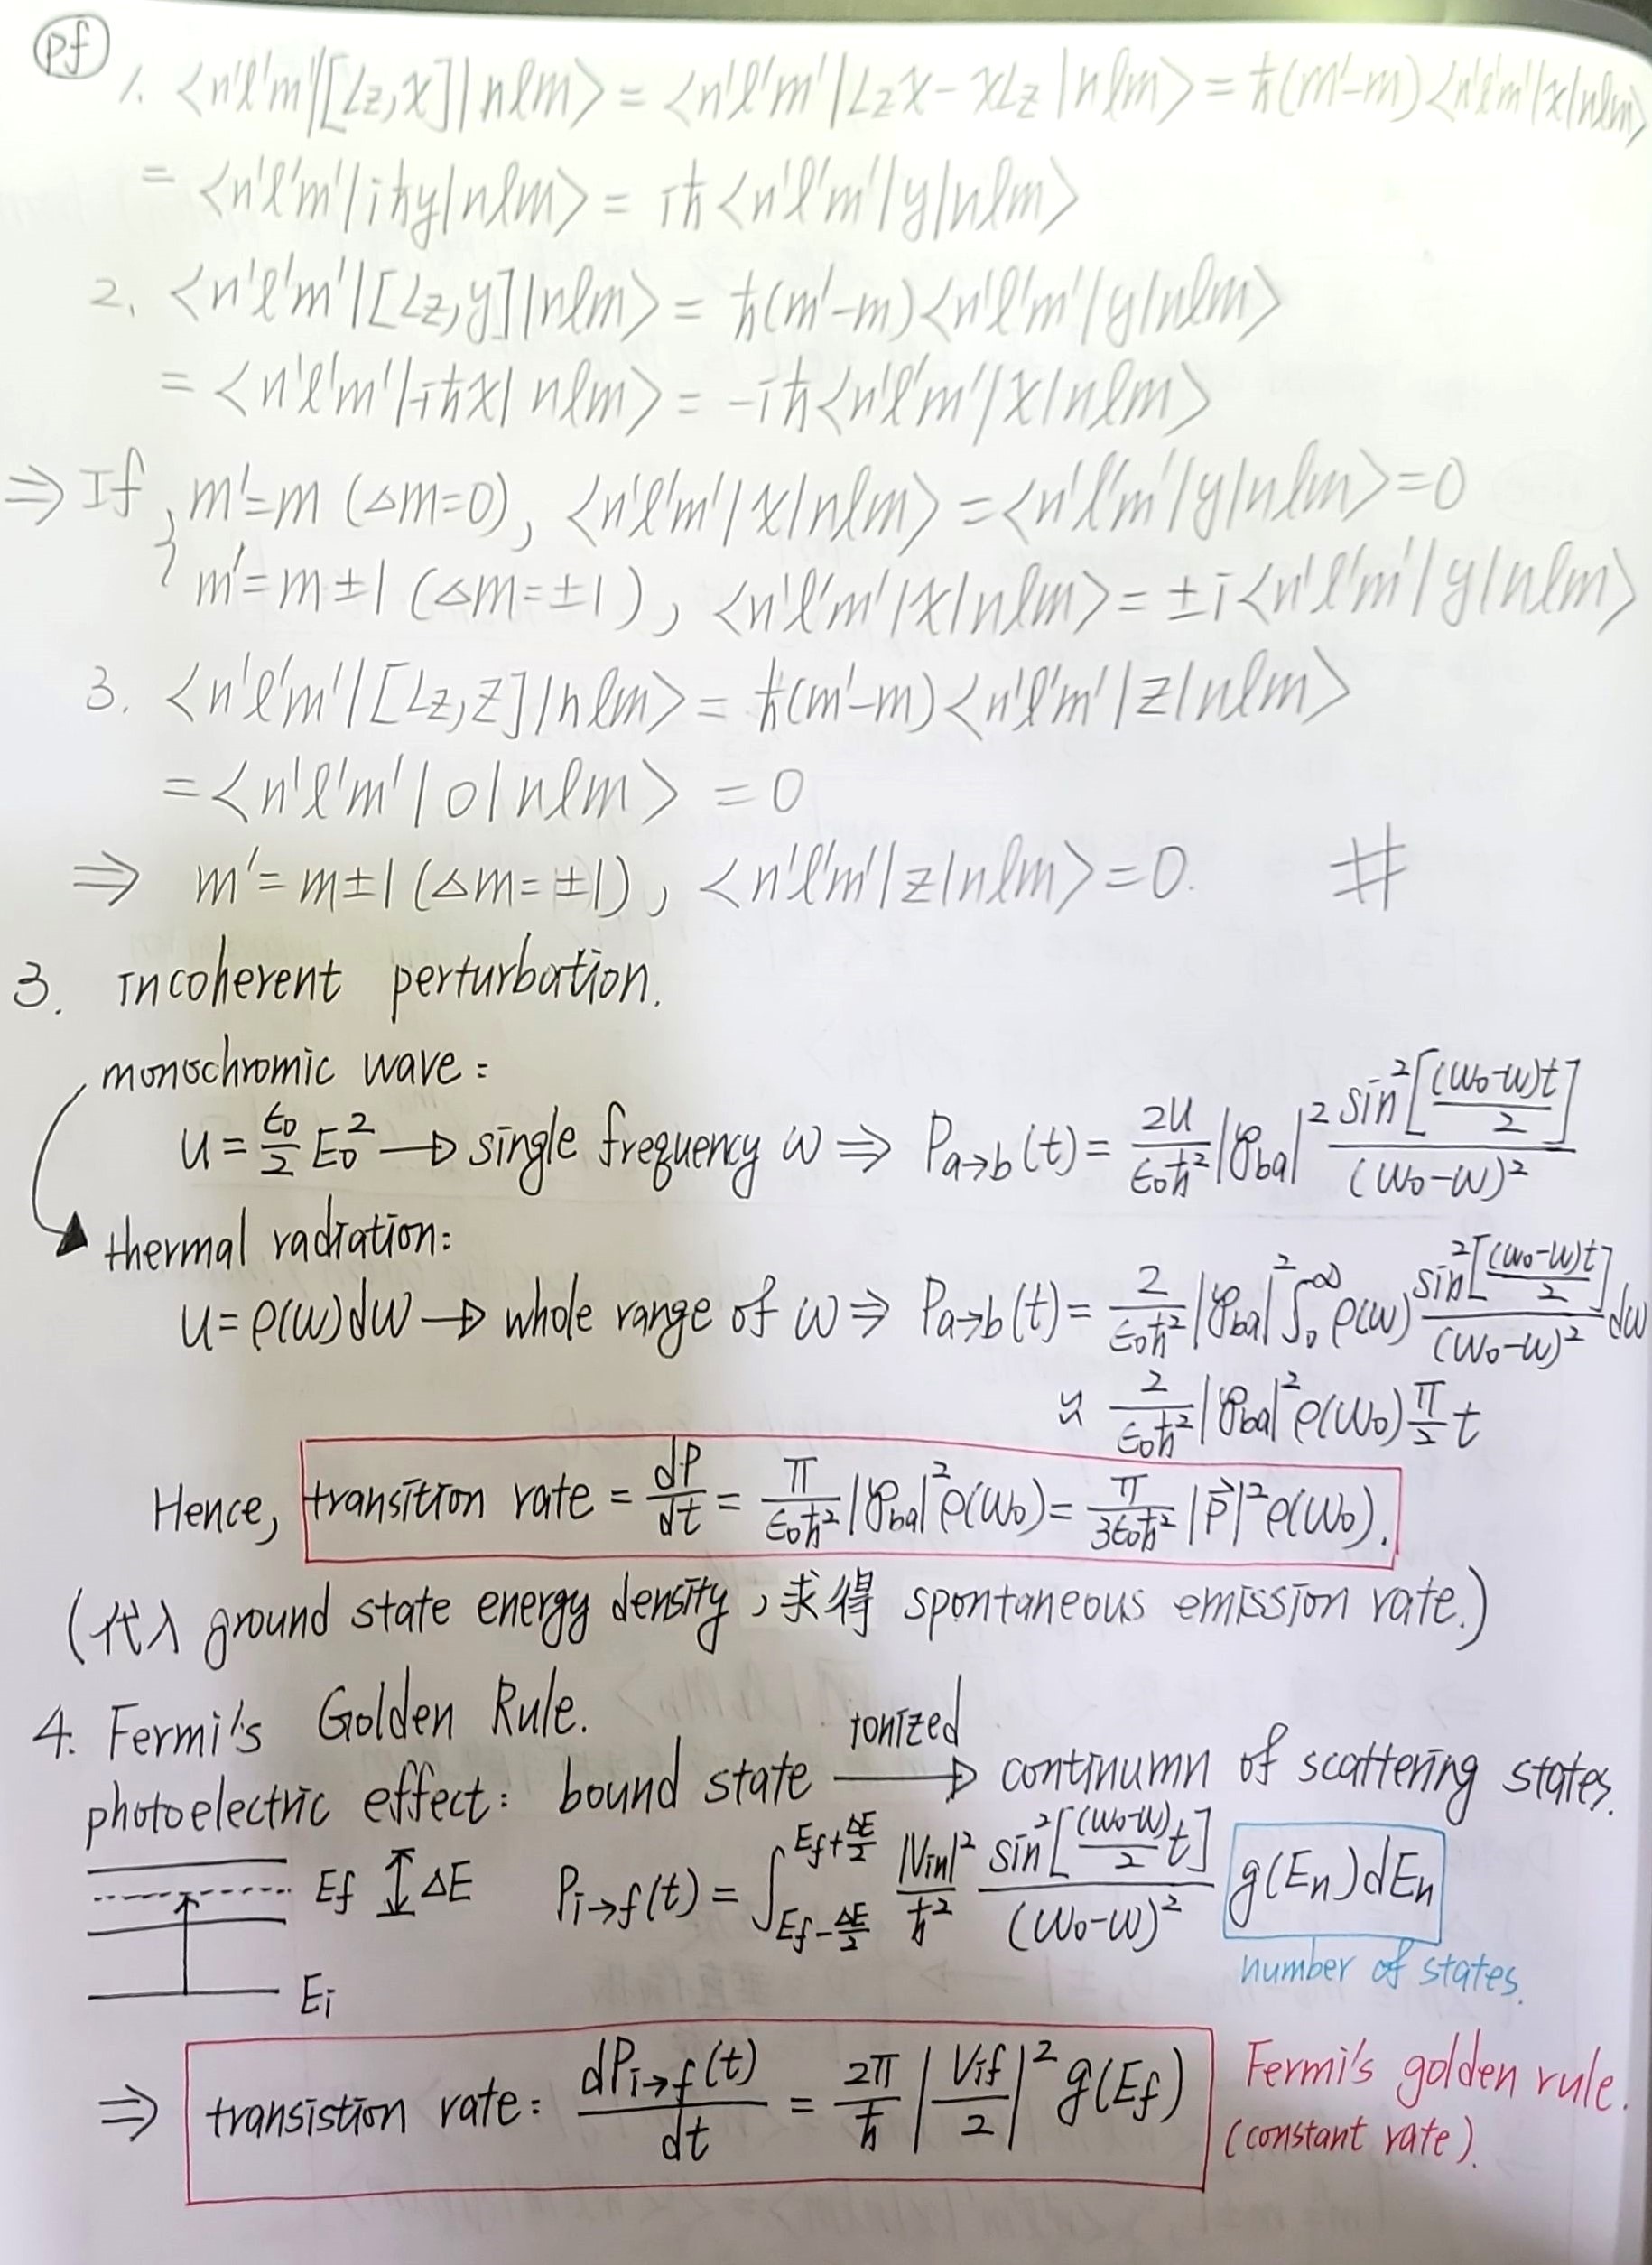 pf
1. ⟨n'l'm'|[Lz,x]|nlm⟩ = ⟨n'l'm'|Lzx - xLz|nlm⟩ = ħ(m'-m)⟨n'l'm'|x|nlm⟩
= ⟨n'l'm'|iħy|nlm⟩ = iħ⟨n'l'm'|y|nlm⟩
2. ⟨n'l'm'|[Lz,y]|nlm⟩ = ħ(m'-m)⟨n'l'm'|y|nlm⟩
= ⟨n'l'm'|-iħx|nlm⟩ = -iħ⟨n'l'm'|x|nlm⟩
⇒ If { m'=m (△m=0), ⟨n'l'm'|x|nlm⟩ = ⟨n'l'm'|y|nlm⟩ = 0
m'=m±1 (△m=±1), ⟨n'l'm'|x|nlm⟩ = ±i⟨n'l'm'|y|nlm⟩
3. ⟨n'l'm'|[Lz,z]|nlm⟩ = ħ(m'-m)⟨n'l'm'|z|nlm⟩
= ⟨n'l'm'|0|nlm⟩ = 0
⇒ m'=m±1 (△m=±1), ⟨n'l'm'|z|nlm⟩ = 0. #
3. Incoherent perturbation.
monochromic wave:
u = ε₀/2 E₀² → single frequency ω ⇒ Pa→b(t) = 2u/ε₀ħ² |℘ba|² sin²[(ω₀-ω)t/2]/(ω₀-ω)²
thermal radiation:
u = ρ(ω)dω → whole range of ω ⇒ Pa→b(t) = 2/ε₀ħ² |℘ba|² ∫₀^∞ ρ(ω) sin²[(ω₀-ω)t/2]/(ω₀-ω)² dω
≈ 2/ε₀ħ² |℘ba|² ρ(ω₀) π/2 t
Hence, transition rate = dP/dt = π/ε₀ħ² |℘ba|² ρ(ω₀) = π/3ε₀ħ² |P⃗|² ρ(ω₀).
(代入 ground state energy density, 求得 spontaneous emission rate.)
4. Fermi's Golden Rule.
photoelectric effect: bound state ionized → continumn of scattering states.
Ef ↕ ΔE Pi→f(t) = ∫_{Ef-ΔE/2}^{Ef+ΔE/2} |Vin|²/ħ² sin²[(ω₀-ω)/2 t]/(ω₀-ω)² g(En)dEn
number of states.
Ei
⇒ transistion rate: dPi→f(t)/dt = 2π/ħ |Vif/2|² g(Ef) Fermi's golden rule.
(constant rate).